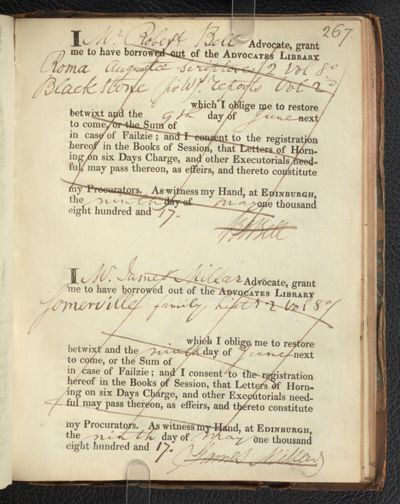 267.
I Mr Robert Bell Advocate, grant
me to have borrowed out of the ADVOCATES LIBRARY
Roma Augustae Scriptores 2 Vol 80
Blackstone Wm. reports Vol 2
which I oblige me to restore
betwixt and the 9th day of June next
to come, or the Sum of
in case of Failzie; and I consent to the registration
hereof in the Books of Session, that Letters of Horn-
ing on six Days Charge, and other Executorials need-
ful may pass thereon, as effeirs, and thereto constitute
my Procurators. As witness my Hand, at EDINBURGH,
the ninth day of May one thousand
eight hundred and 17.
Bell
I Mr. James Millar Advocate, grant
me to have borrowed out of the ADVOCATES LIBRARY
Somerville family 2 Vol 80
which I oblige me to restore
betwixt and the ninth day of June next
to come, or the Sum of
in case of Failzie; and I consent to the registration
hereof in the Books of Session, that Letters of Horn-
ing on six Days Charge, and other Executorials need-
ful may pass thereon, as effeirs, and thereto constitute
my Procurators. As witness my Hand, at EDINBURGH,
the ninth day of May one thousand
eight hundred and 17.
James Millar